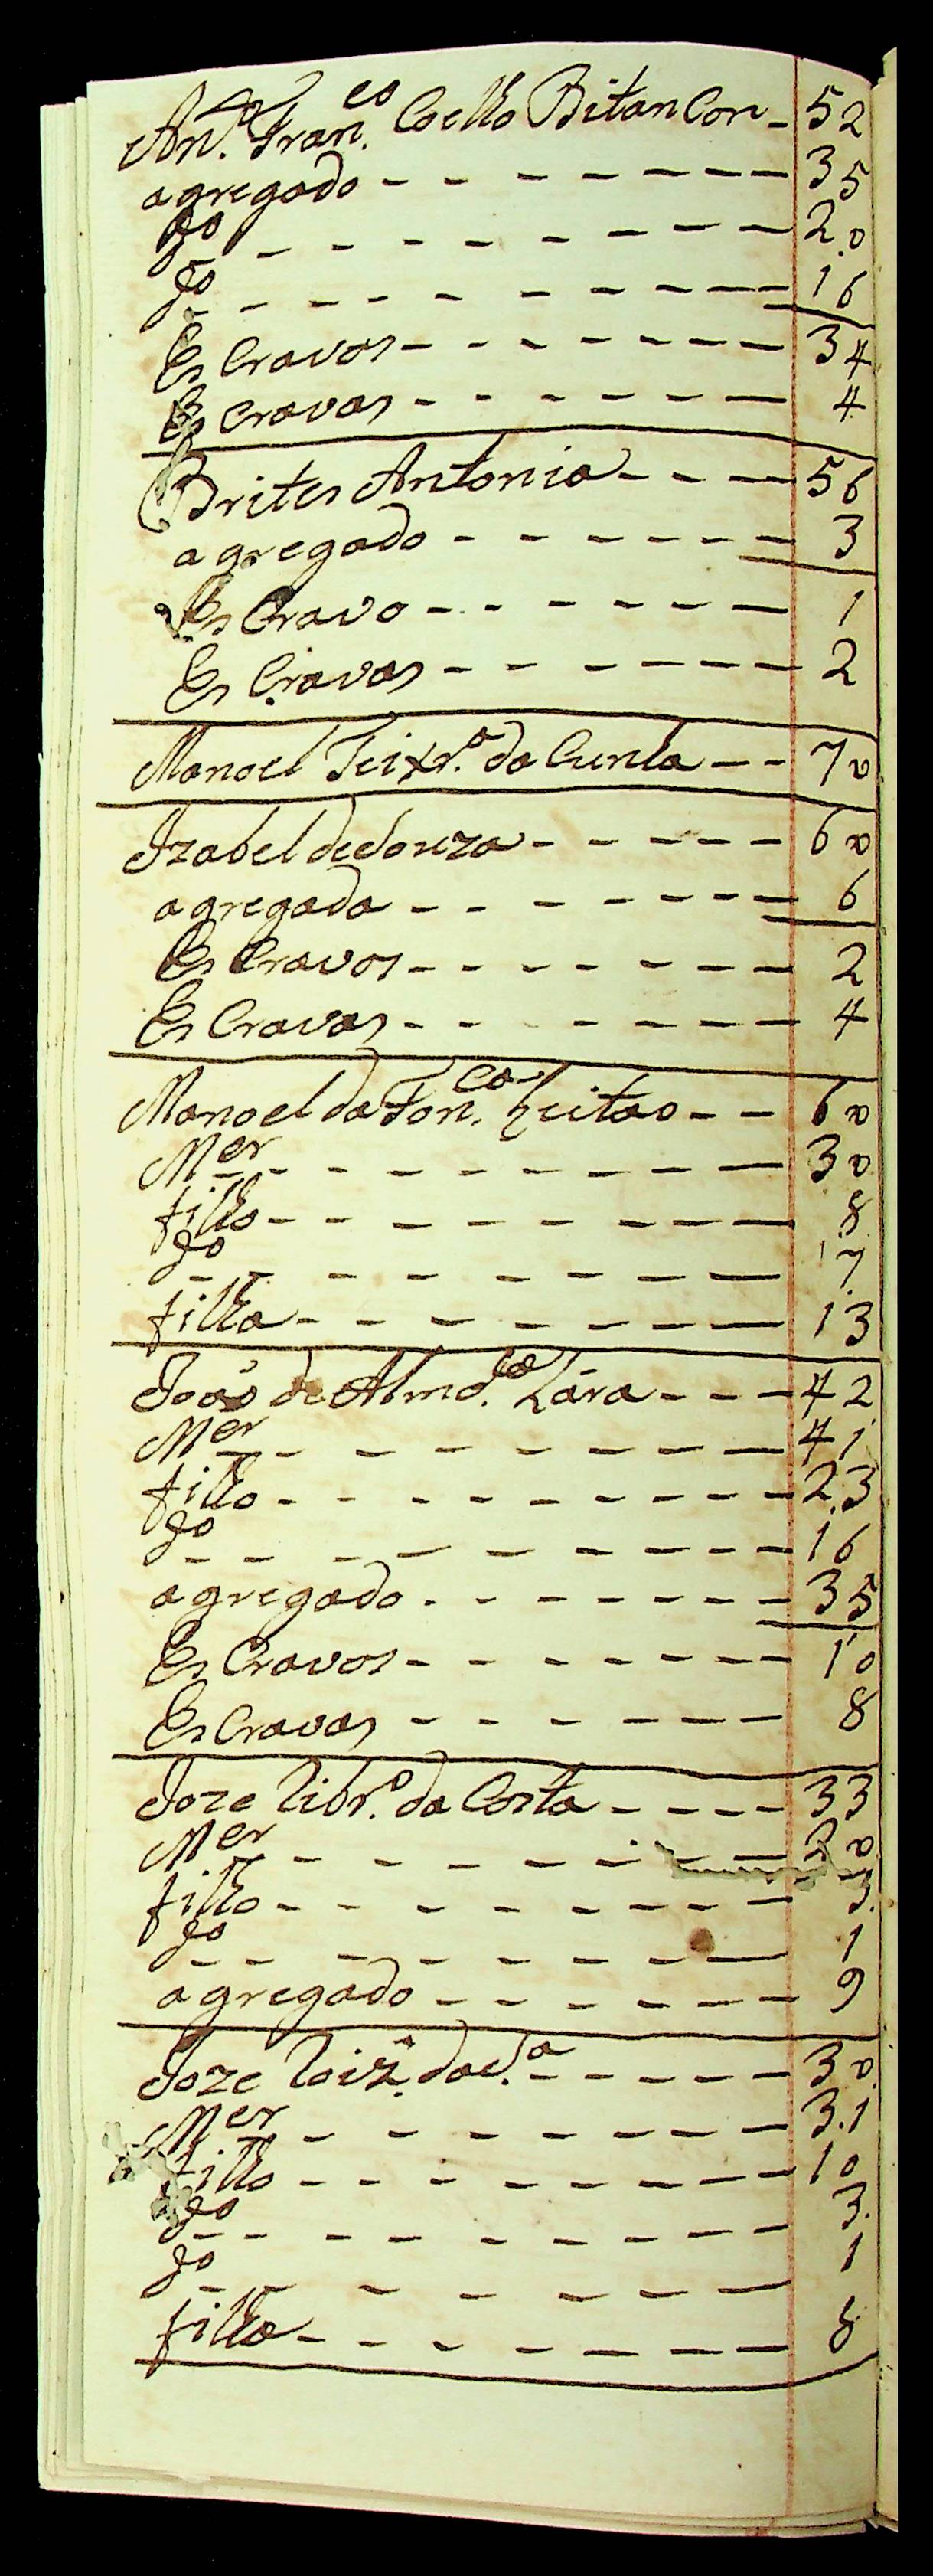 Anto. Franco. Coelho Bitancor - 52
agregado - - - - - - - - 35
do - - - - - - - - - 20
do - - - - - - - - - 16
Es Cravos - - - - - - - 34
Es cravas - - - - - - - 4
Brites Antonia - - - - 56
agregado - - - - - - 3
Es Cravo - - - - - - - 1
Es Cravas - - - - - - - 2
Manoel Teixra. da Cunha - - 70
Izabel deSouza - - - - - 60
agregada - - - - - - - 6
Es Cravos - - - - - - - 2
Es Cravas - - - - - - - 4
Manoel da Fonca. Leitao - - 60
Mer - - - - - - - - 30
filho - - - - - - - - 8
do - - - - - - - - 7
filha - - - - - - - - 13
João de Almda. Lára - - - 42
Mer - - - - - - - - 41
filho - - - - - - - - - 23
do - - - - - - - - - 16
agregado - - - - - - - 35
Es Cravos - - - - - - - 10
Es Cravas - - - - - - 8
Joze Ribro. da Costa - - - - 33
Mer - - - - - - - 30
filho - - - - - - - - 3
do - - - - - - - - 1
agregado - - - - - - 9
Joze da - - - - - 30
Mer - - - - - - - 31
filho - - - - - - - - 10
do - - - - - - - - 3
do - - - - - - - 1
filha - - - - - - - 8